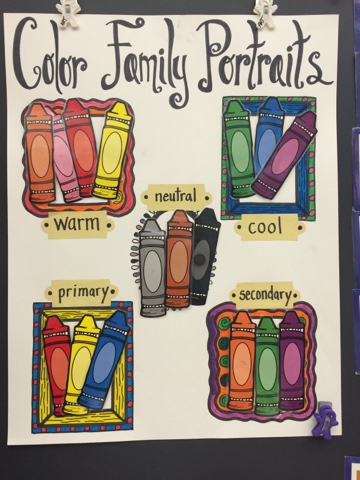 Color Family Portraits
neutral
warm
cool
primary
secondary